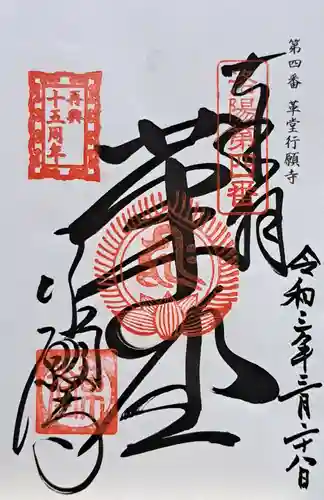 第四番 革堂行願寺
奉拝
洛陽第四番
革堂
行願寺
再興
十五周年
令和三年三月二十八日